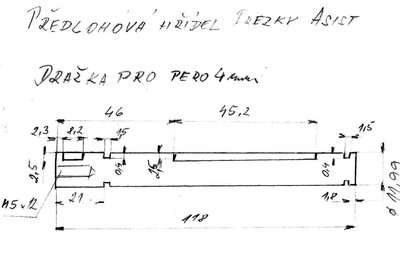 PŘEDLOHOVÁ HŘÍDEL FREZKY ASIST
DRAŽKA PRO PERO 4mm
46 45,2
2,3 8,2 15 1,5
2,5 0,4 2,5 0,4 ø 11,99
M5x12 21 1,8
118